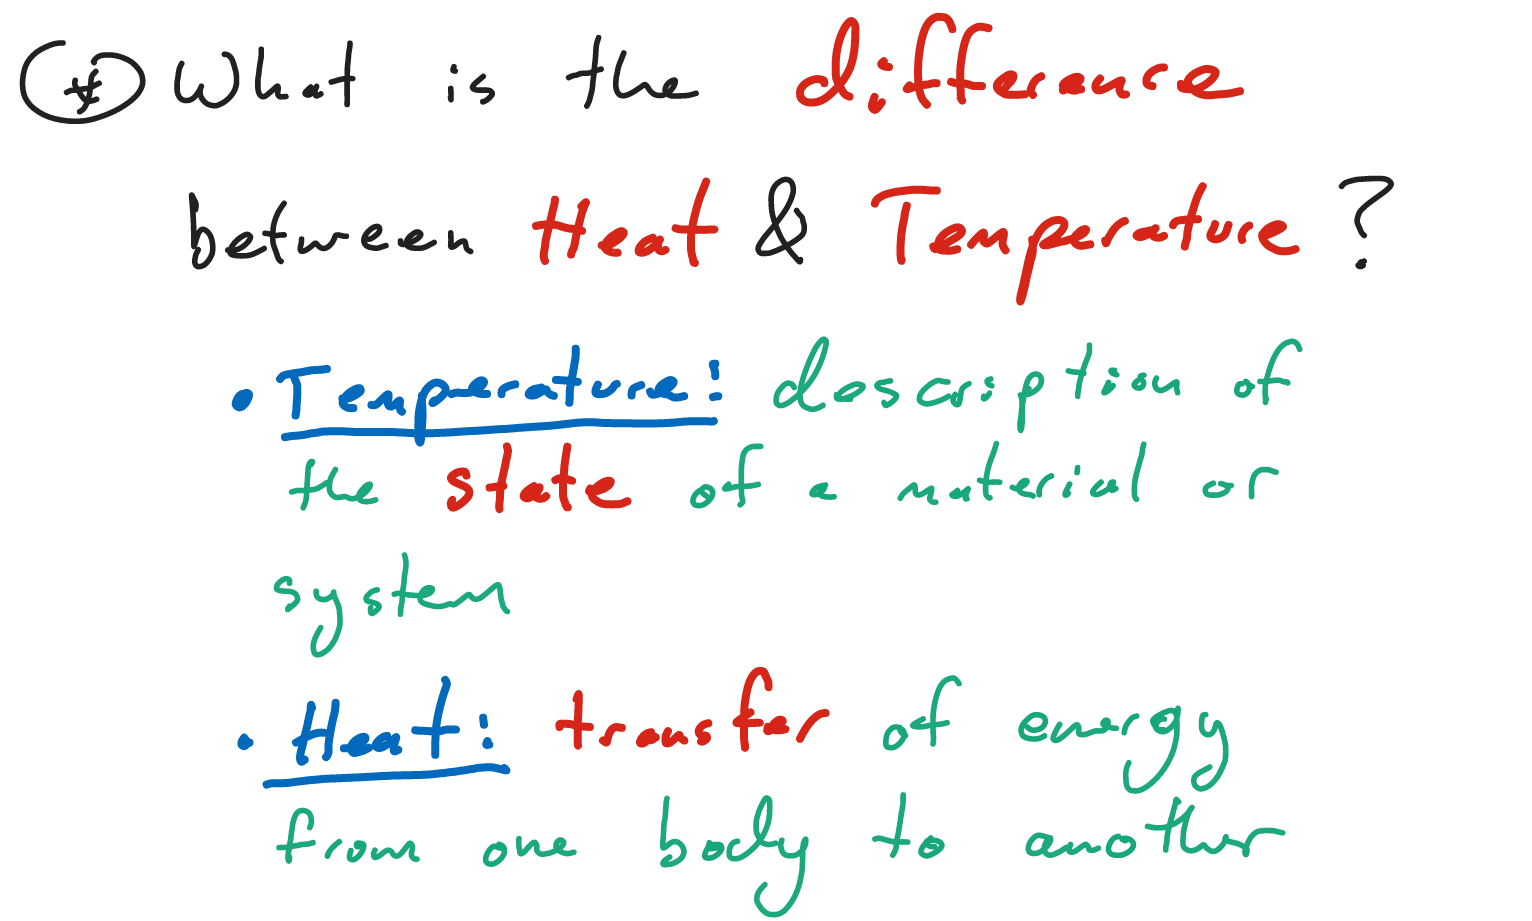 What is the difference
between Heat & Temperature?
• Temperature: description of
the state of a material or
system
• Heat: transfer of energy
from one body to another